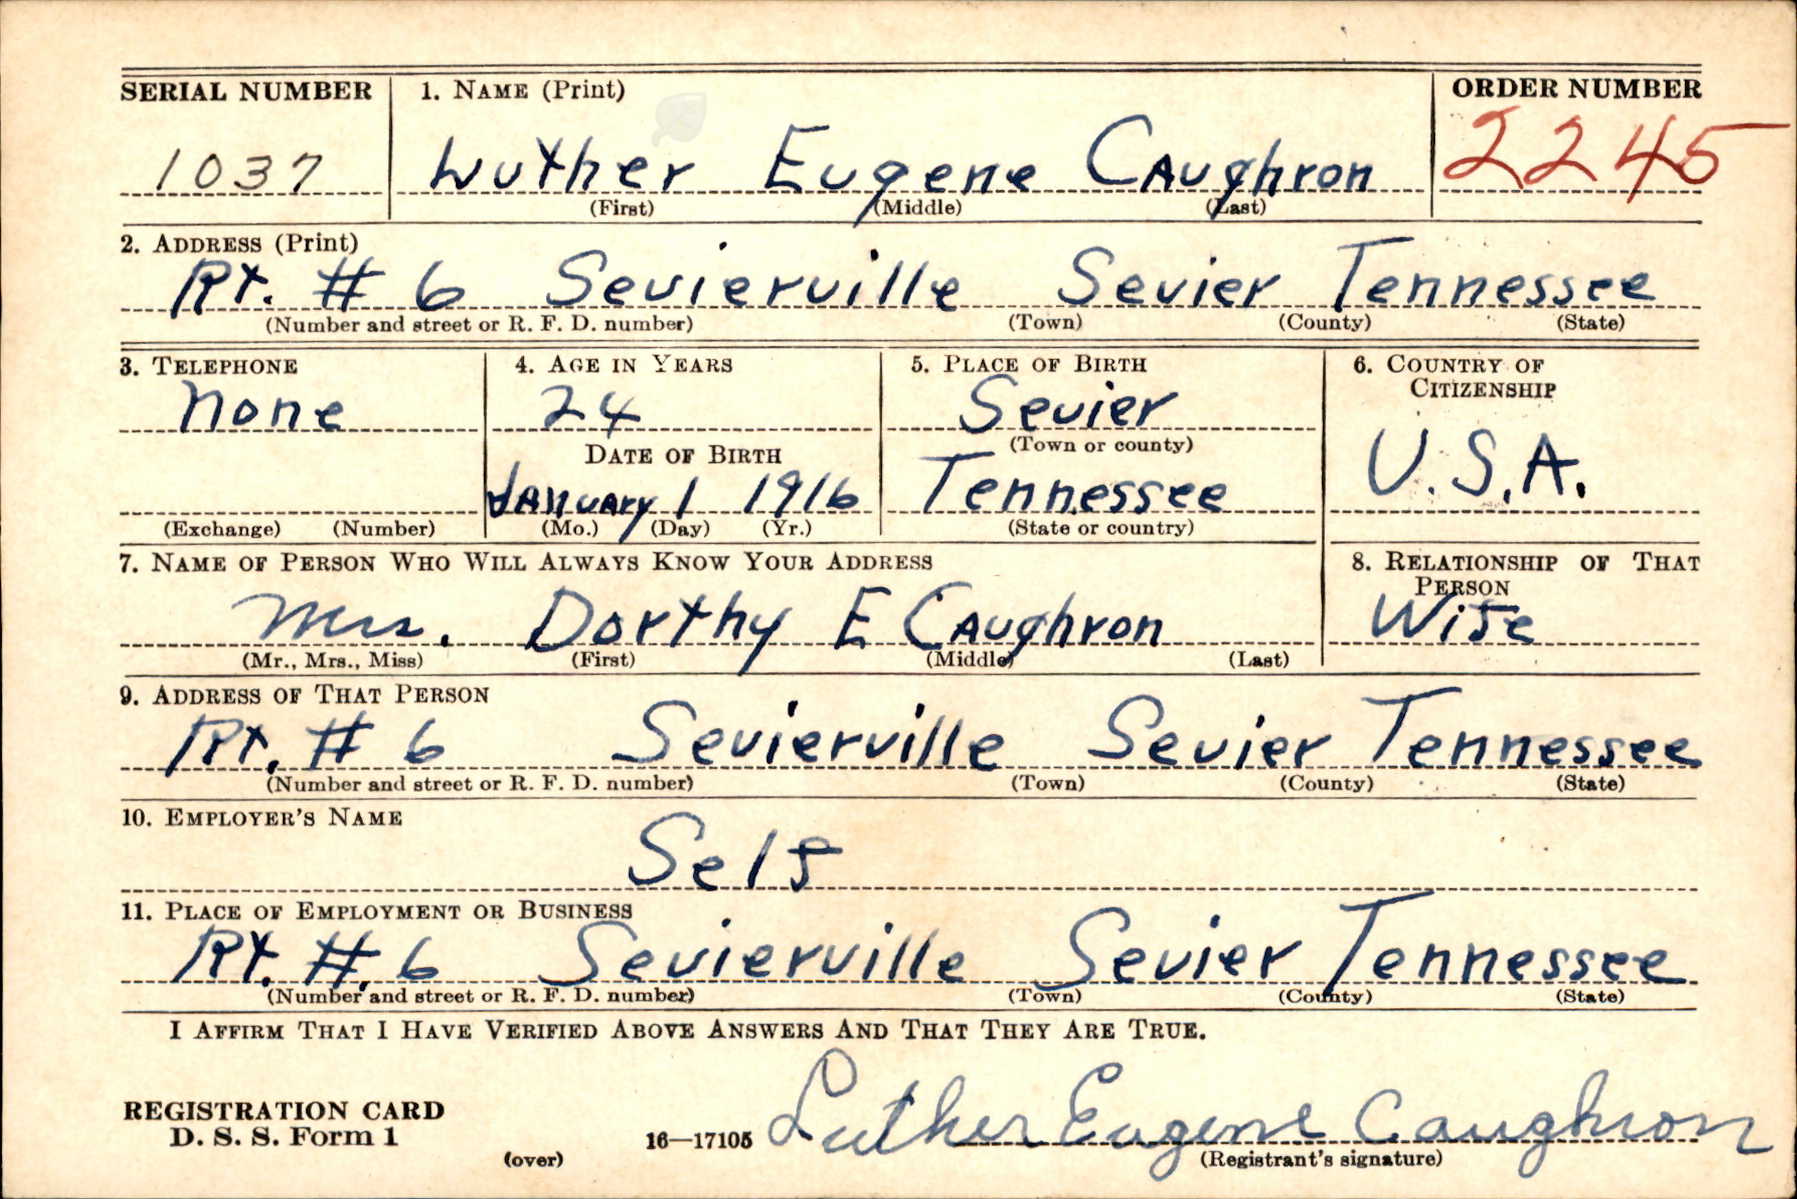 SERIAL NUMBER 1. NAME (Print) ORDER NUMBER
1037 Luther Eugene Caughron 2245
(First) (Middle) (Last)
2. ADDRESS (Print)
Rt. # 6 Sevierville Sevier Tennessee
(Number and street or R. F. D. number) (Town) (County) (State)
3. TELEPHONE 4. AGE IN YEARS 5. PLACE OF BIRTH 6. COUNTRY OF
CITIZENSHIP
None 24 Sevier
DATE OF BIRTH (Town or county)
U.S.A.
January 1 1916 Tennessee
(Exchange) (Number) (Mo.) (Day) (Yr.) (State or country)
7. NAME OF PERSON WHO WILL ALWAYS KNOW YOUR ADDRESS 8. RELATIONSHIP OF THAT
PERSON
Mrs. Dorthy E Caughron Wife
(Mr., Mrs., Miss) (First) (Middle) (Last)
9. ADDRESS OF THAT PERSON
Rt. # 6 Sevierville Sevier Tennessee
(Number and street or R. F. D. number) (Town) (County) (State)
10. EMPLOYER'S NAME
Self
11. PLACE OF EMPLOYMENT OR BUSINESS
Rt. #. 6 Sevierville Sevier Tennessee
(Number and street or R. F. D. number) (Town) (County) (State)
I AFFIRM THAT I HAVE VERIFIED ABOVE ANSWERS AND THAT THEY ARE TRUE.
REGISTRATION CARD
D. S. S. Form 1 16—17105 Luther Eugene Caughron
(over) (Registrant's signature)